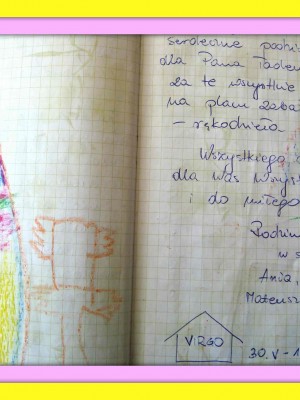 Serdeczne podzi
dla Pana Tadeu
za te wszystkie
na plam zaba
– rękodzieła
Wszystkiego
dla Was wszyst
i do miłego
Rodzin
w s
Ania,
Mateusz
VIRGO
30.V - 1